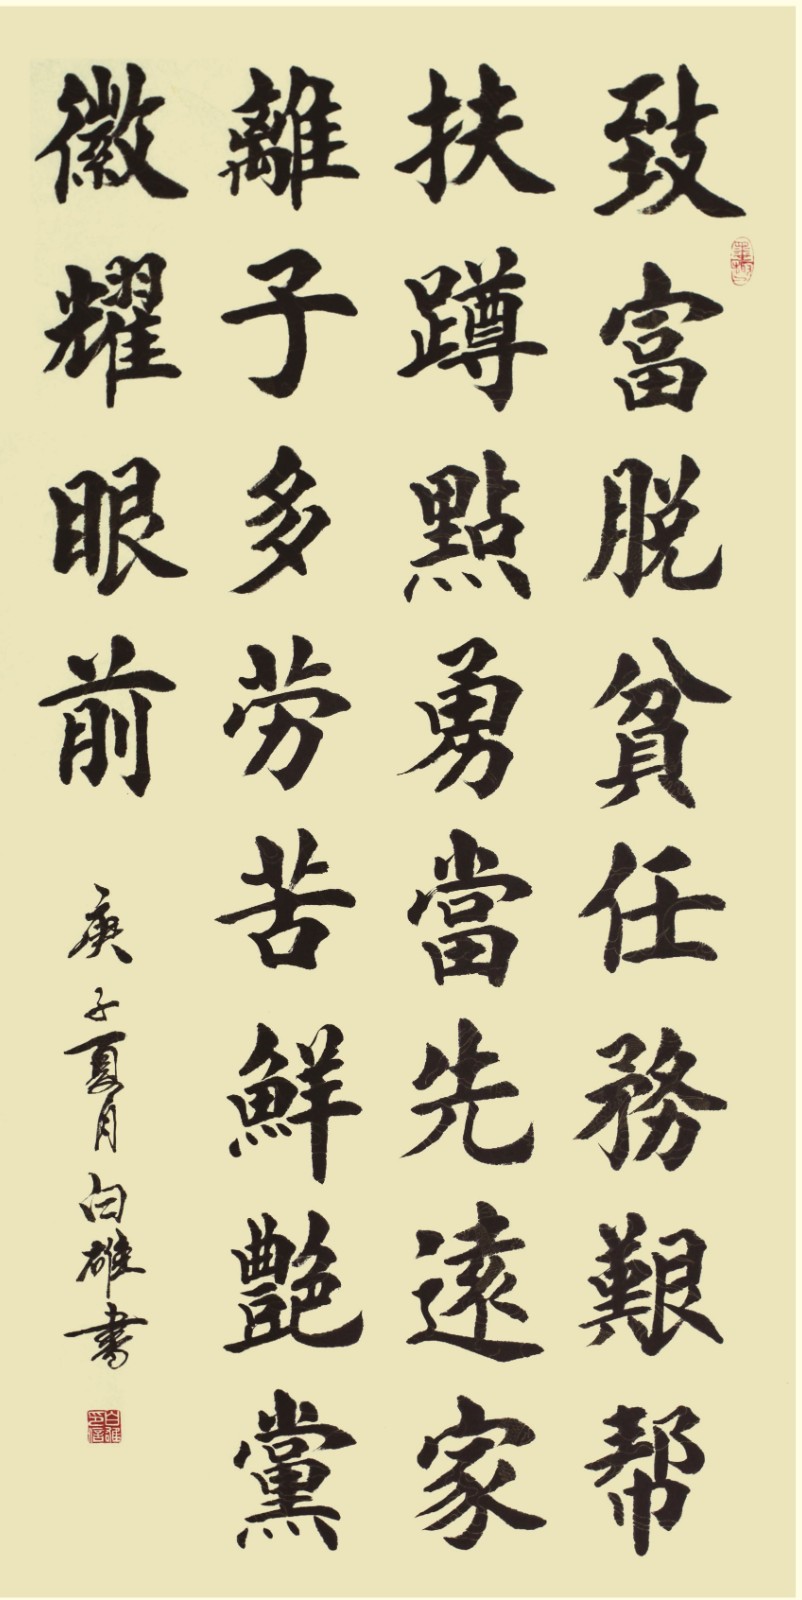 致富脱貧任務艱帮
扶蹲點勇當先遠家
離子多劳苦鮮艷黨
徽耀眼前
庚子夏月白雄書